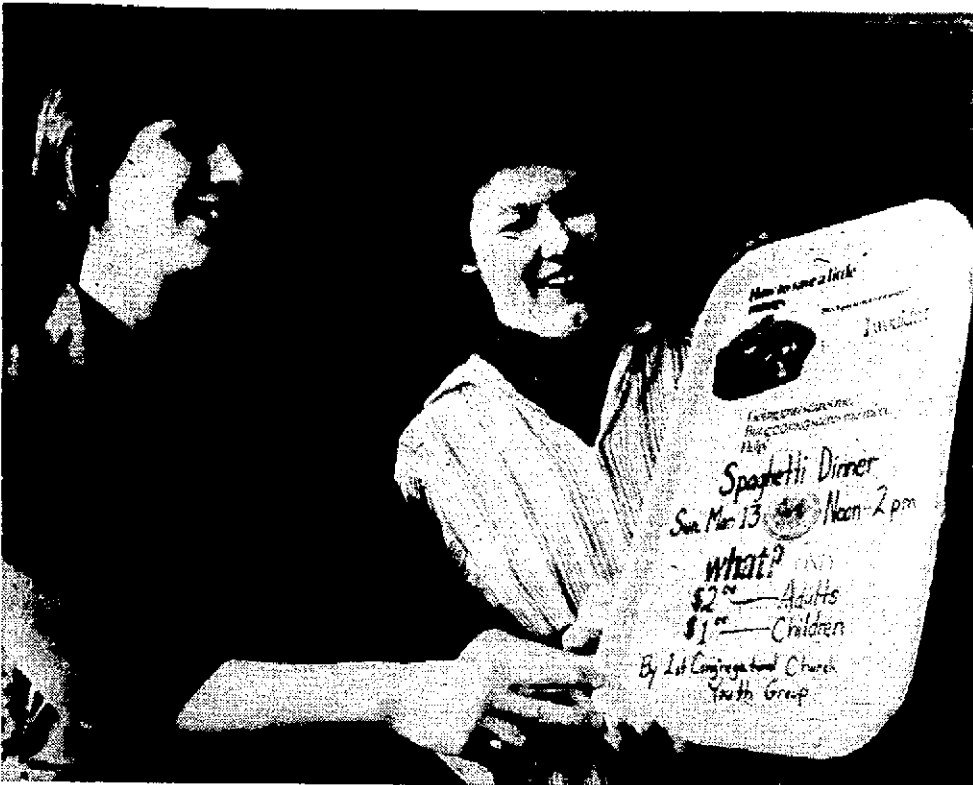 How to save a little
money
Spaghetti Dinner
Sun. Mar 13 Noon-2 pm
what?
$2.00 — Adults
$1.00 — Children
By 1st Congregational Church
Youth Group